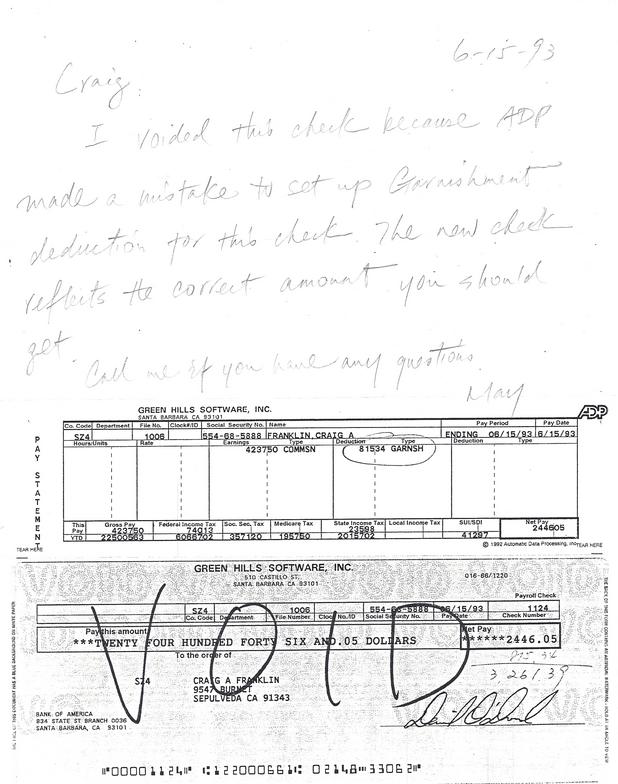 6-15-93
Craig,
I voided this check because ADP
made a mistake to set up Garnishment
deduction for this check. The new check
reflects the correct amount you should
get.
Call me if you have any questions.
May
GREEN HILLS SOFTWARE, INC.
SANTA BARBARA CA 93101
ADP
PAY STATEMENT
Co. Code Department File No. Clock#/ID Social Security No. Name Pay Period Pay Date
SZ4 1006 554-68-5888 FRANKLIN,CRAIG A ENDING 06/15/93 6/15/93
Hours/Units Rate Earnings Type Deduction Type Deduction Type
423750 COMMSN 81534 GARNSH
This Pay Gross Pay Federal Income Tax Soc. Sec. Tax Medicare Tax State Income Tax Local Income Tax SUI/SDI Net Pay
423750 74013 23598 244605
YTD 22500563 6066702 357120 195750 2015702 41297
TEAR HERE © 1992 Automatic Data Processing, Inc. TEAR HERE
GREEN HILLS SOFTWARE, INC.
510 CASTILLO ST.
SANTA BARBARA CA 93101
016-66/1220
Payroll Check
SZ4 1006 554-68-5888 06/15/93 1124
Co. Code Department File Number Clock No./ID Social Security No. Pay Date Check Number
Pay this amount Net Pay
***TWENTY FOUR HUNDRED FORTY SIX AND.05 DOLLARS ******2446.05
To the order of 815.34
3261.39
VOID
SZ4 CRAIG A FRANKLIN
9547 BURNET
SEPULVEDA CA 91343
BANK OF AMERICA
834 STATE ST BRANCH 0036
SANTA BARBARA, CA 93101
⑈00001124⑈ ⑆122000661⑆ 02148⑉33062⑈